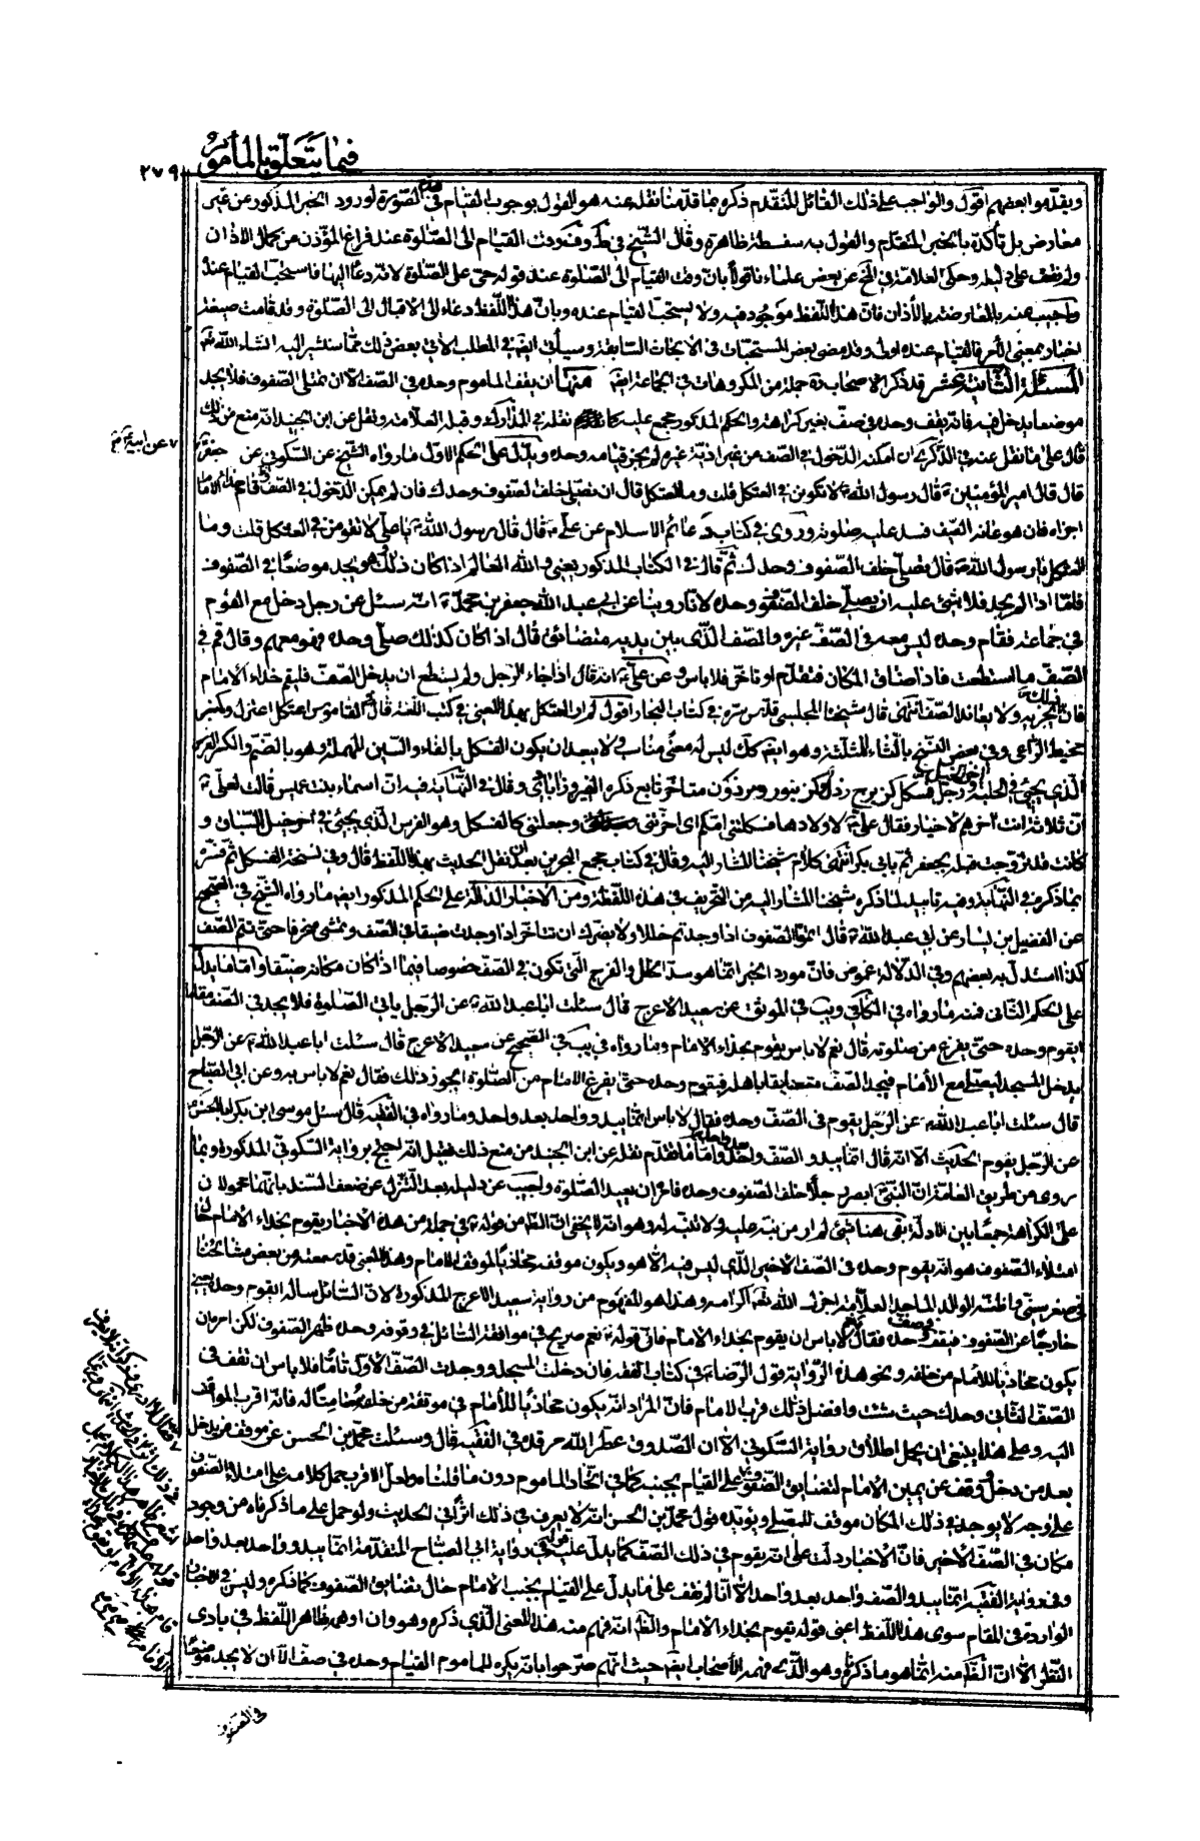 فيما يتعلق بالمأموم
٢٧٩
ويقدموا بعضهم اقول والواجب على ذلك القائل المتقدم ذكره بما قدمنا نقله عنه هو القول بوجوب القيام في الصورة لورود الخبر المذكور عن غير
معارض بل تأكده بالخبر المتقدم والقول به سفسطة ظاهرة وقال الشيخ في ط وف وقت القيام الى الصلوة عند فراغ المؤذن من كمال الاذان
ولم نقف على دليله وحكى العلامة في لخ عن بعض علمائنا قولا بان وقت القيام الى الصلوة عند قوله حي على الصلوة لانه دعاء اليها فاستحب القيام عنده
واجيب عنه بالمعارضة بالأذان فان هذا اللفظ موجود فيه ولا يستحب القيام عنده وبان هذا اللفظ دعاء الى الاقبال الى الصلوة وقد قامت صيغة
اخبار بمعنى الأمر فالقيام عنده اولى وقد مضى بعض المستحبات في الابحاث السابقة وسيأتي ايضا في المطلب الاتي بعض ذلك مما سنشير اليه انشاء الله تعالى
المسئلة الثانية عشر قد ذكر الاصحاب رة جملة من المكروهات في الجماعة ايضا منها ان يقف الماموم وحده في الصف الا ان تمتلي الصفوف فلا يجد
موضعا يدخل فيه فانه يقف وحده في صف بغير كراهة والحكم المذكور مجمع عليه كما نقله في المدارك وقبله العلامة ونقل عن ابن الجنيد انه منع من ذلك
قال على ما نقل عنه في الذكرى ان امكنه الدخول في الصف من غير اذية غيره لم يجز قيامه وحده ويدل على الحكم الاول ما رواه الشيخ عن السكوني عن جعفر
عن ابيه
قال قال امير المؤمنين ع قال رسول الله ص لا تكونن في العثكل قلت وما العثكل قال ان تصلي خلف الصفوف وحدك فان لم يمكن الدخول في الصف قام حذاء الامام
اجزاه فان هو عاند الصف فسد عليه صلوته وروى في كتاب دعائم الاسلام عن علي ع قال قال رسول الله ص يا علي لا تقومن في العثكل قلت وما
العثكل يا رسول الله ص قال تصلي خلف الصفوف وحدك ثم قال في الكتاب المذكور يعني والله العالم اذا كان ذلك وهو يجد موضعا في الصفوف
فاما اذا لم يجد فلا شئ عليه ان يصلي خلف الصفوف وحده لانا روينا عن ابي عبد الله جعفر بن محمد ع انه سئل عن رجل دخل مع القوم
في جماعة فقام وحده ليس معه في الصف غيره والصف الذي بين يديه متضائق قال اذا كان كذلك صلى وحده وهو معهم وقال قم في
الصف ما استطعت فاذا ضاق المكان فتقدم او تاخر فلا باس وعن علي ع انه قال اذا جاء الرجل ولم يستطع ان يدخل الصف فليقم حذاء الامام
فان ذلك يجزيه ولا يعاند الصف انتهى قال شيخنا المجلسي قدس سره في كتاب البحار اقول لم ار العثكل بهذا المعنى في كتب اللغة قال في القاموس اعتكل اعتزل وكمنبر
مخيط الراعي وفي بعض النسخ بالثاء المثلثة وهو ايضا كك ليس له معنى مناسب ولا يبعد ان يكون الفسكل بالفاء والسين المهملة وهو بالضم والكسر الفرس
الذي يجئ في الحلبة اخر الخيل ورجل فسكل كزبرج رذل وكزنبور وبرذون متاخر تابع ذكره الفيروزابادي وقال في النهاية فيه ان اسماء بنت عميس قالت لعلي ع
ان ثلاثة انت اخرهم لاخيار فقال علي ع لاولادها فسكلتني امكم اي اخرتني وجعلتني كالفسكل وهو الفرس الذي يجئ في اخر خيل السباق و
كانت قد تزوجت قبله بجعفر ثم بابي بكر انتهى كلام شيخنا المشار اليه وقال في كتاب مجمع البحرين بعد ان نقل الحديث بهذا اللفظ قال وفي نسخة الفسكل ثم فسره
بما ذكره في النهاية وفيه تاييد لما ذكره شيخنا المشار اليه من التحريف في هذه اللفظة ومن الاخبار الدالة على الحكم المذكور ايضا ما رواه الشيخ في الصحيح
عن الفضيل بن يسار عن ابي عبد الله ع قال اتموا الصفوف اذا وجدتم خللا ولا يضرك ان تتاخر اذا وجدت ضيقا في الصف وتمشي منحرفا حتى تتم الصف
كذا استدل به بعضهم وفي الدلالة غموض فان مورد الخبر انما هو سد الخلل والفرج التي تكون في الصف خصوصا فيما اذا كان مكانه ضيقا واما ما يدل
على الحكم الثاني فمنه ما رواه في الكافي ويب في الموثق عن سعيد الاعرج قال سئلت ابا عبد الله ع عن الرجل ياتي الصلوة فلا يجد في الصف مقاما
ايقوم وحده حتى يفرغ من صلوته قال نعم لا باس يقوم بحذاء الامام وما رواه في يب في الصحيح عن سعيد الاعرج قال سئلت ابا عبد الله ع عن الرجل
يدخل المسجد ليصلي مع الأمام فيجد الصف متضايقا باهله فيقوم وحده حتى يفرغ الامام من الصلوة ايجوز ذلك فقال نعم لا باس به وعن ابي الصباح
قال سئلت ابا عبد الله ع عن الرجل يقوم في الصف وحده فقال لا باس انما يبدو واحد بعد واحد وما رواه في الفقيه قال سئل موسى ابن بكر ابا الحسن ع
عن الرجل يقوم الحديث الا انه قال انما يبدو الصف واحدا بعد واحد واما ما تقدم نقله عن ابن الجنيد من منع ذلك فقيل انه احتج برواية السكوني المذكورة وبما
روى من طريق العامة ان النبي ص ابصر رجلا خلف الصفوف وحده فامره ان يعيد الصلوة واجيب عن دليله بعد التنزل عن ضعف السند بانهما محمولان
على الكراهة جمعا بين الادلة بقى هنا شئ لم ار من نبه عليه ولا تنبه له وهو انه لا يخفى ان الظاهر من قوله ع في جملة من هذه الاخبار يقوم بحذاء الامام حال
امتلاء الصفوف هو انه يقوم وحده في الصف الاخير الذي ليس فيه الا هو ويكون موقفه محاذيا لموقف الامام وهذا المعنى قد سمعته من بعض مشايخنا
في صغر سني واظنه الوالد الماجد العلامة اجزل الله تعالى اكرامه وهذا هو المفهوم من رواية سعيد الاعرج المذكورة لان السائل ساله ايقوم وحده يعني
خارجا عن الصفوف فيقف وحده فقال لا باس ان يقوم بحذاء الامام فان قوله نعم صريح في موافقة السائل في وقوفه وحده ظهر الصفوف لكن امره ان
يكون محاذيا للأمام من خلفه ونحو هذه الرواية قول الرضا ع في كتاب الفقه فان دخلت المسجد ووجدت الصف الاول تاما فلا باس ان تقف في
الصف الثاني وحدك حيث شئت وافضل ذلك قرب الامام فان المراد انه يكون محاذيا للأمام في موقفه من خلفه فانه اقرب المواقف
اليه وعلى هذا ينبغي ان يحمل اطلاق رواية السكوني الا ان الصدوق عطر الله مرقده في الفقيه قال وسئلت محمد بن الحسن عن موقف من يدخل
بعد من دخل ووقف عن يمين الامام لتضايق الصفوف على القيام بجنبه كما في اتحاد الماموم دون ما قلناه ولعل الاقرب حمل كلامه على امتلاء الصفوف
على وجه لا يوجد في ذلك المكان موقف للمصلي ويؤيده قول محمد بن الحسن انه لا يعرف في ذلك اثرا في الحديث ولو حمل على ما ذكرناه من وجود
مكان في الصف الاخير فان الاخبار دلت على انه يقوم في ذلك الصف كما يدل عليه قوله في رواية ابي الصباح المتقدمة انما يبدو واحد بعد واحد
وفي رواية الفقيه انما يبدو الصف واحد بعد واحد الا انا لم نقف على ما يدل على القيام بجنب الامام حال تضايق الصفوف كما ذكره وليس في الاخبار
الواردة في المقام سوى هذا اللفظ اعني قوله يقوم بحذاء الامام والظاهر انه فهم منه هذا المعنى الذي ذكره وهو وان اوهمه ظاهر اللفظ في بادى
النظر الا ان الظاهر منه انما هو ما ذكرناه وهو الذي فهمه الأصحاب ايضا حيث انهم صرحوا بانه يكره للماموم القيام وحده في صف الا ان لا يجد موضعا
في الصفوف